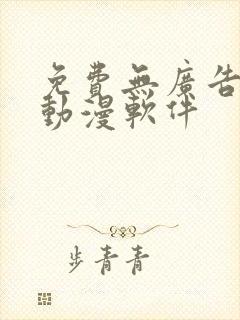 免費無廣告
動漫軟件
步青青